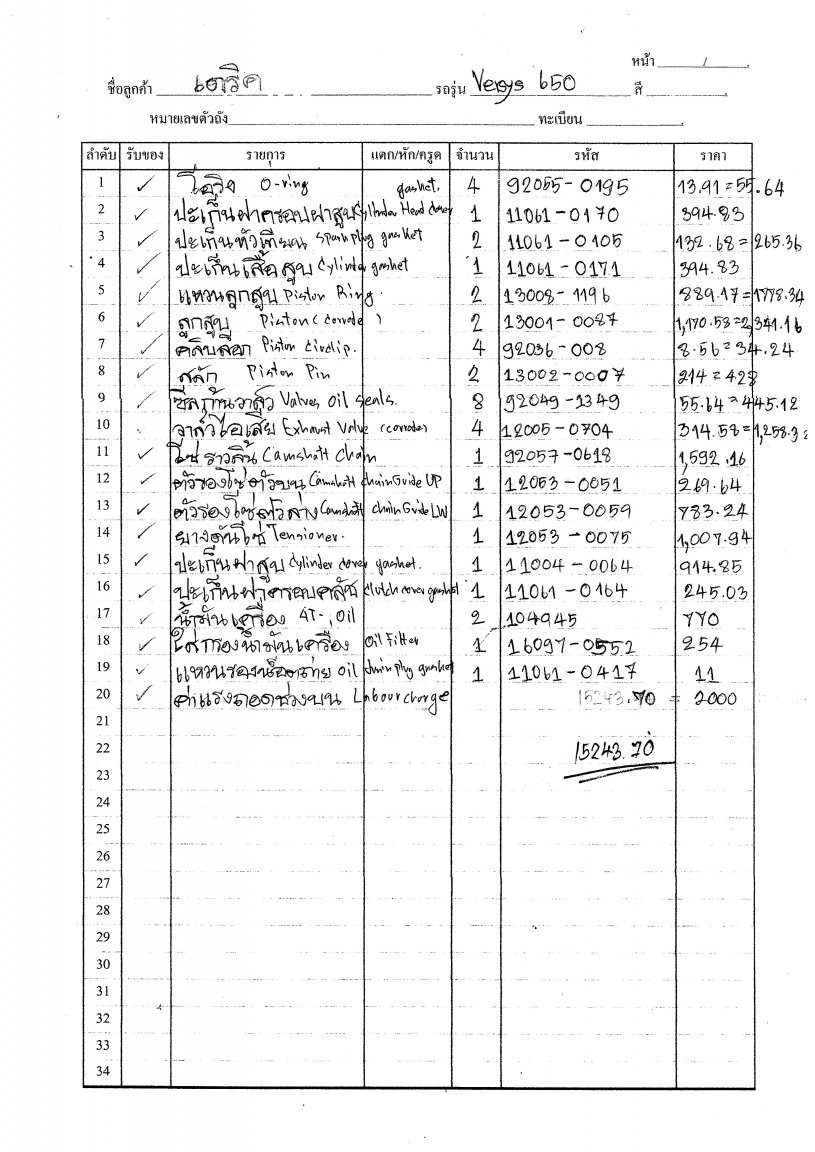 หน้า /
ชื่อลูกค้า เดริค รถรุ่น Versys 650 สี
หมายเลขตัวถัง ทะเบียน
ลำดับ รับของ รายการ แตก/หัก/ครูด จำนวน รหัส ราคา
1 ✓ โอริง O-ring gasket. 4 92055-0195 13.91=55.64
2 ✓ ปะเก็นฝาครอบฝาสูบ Cylinder Head cover 1 11061-0170 394.83
3 ✓ ปะเก็นหัวเทียน Spark plug gasket 2 11061-0105 132.68=265.36
4 ✓ ปะเก็นเสื้อสูบ Cylinder gasket 1 11061-0171 394.83
5 ✓ แหวนลูกสูบ Piston Ring. 2 13008-1196 889.17=1778.34
6 ✓ ลูกสูบ Piston ( ) 2 13001-0087 1,170.58=2,341.16
7 ✓ คลิบล๊อก Piston Circlip. 4 92036-008 8.56=34.24
8 ✓ สลัก Piston Pin 2 13002-0007 214=428
9 ✓ ซีลก้านวาล์ว Valves Oil seals. 8 92049-1349 55.64=445.12
10 ✓ วาล์วไอเสีย Exhaust Valve (corrode) 4 12005-0704 314.58=1,258.32
11 ✓ โซ่ราวลิ้น Camshaft Chain 1 92057-0618 1,592.16
12 ✓ ตัวรองโซ่ตัวบน Camshaft chain Guide UP 1 12053-0051 269.64
13 ✓ ตัวรองโซ่ตัวล่าง Camshaft chain Guide LW 1 12053-0059 783.24
14 ✓ ยางดันโซ่ Tensioner. 1 12053-0075 1,007.94
15 ✓ ปะเก็นฝาสูบ Cylinder cover gasket. 1 11004-0064 914.85
16 ✓ ปะเก็นฝาครอบคลัช Clutch cover gasket 1 11061-0164 245.03
17 ✓ น้ำมันเครื่อง 4T-, Oil 2 104945 770
18 ✓ ไส้กรองน้ำมันเครื่อง Oil Filter 1 16097-0552 254
19 ✓ แหวนรองน๊อตถ่าย oil drain plug gasket 1 11061-0417 11
20 ✓ ค่าแรงถอดช่วงบน Labour charge 15243.70 = 2000
21
22 15243.70
23
24
25
26
27
28
29
30
31
32
33
34